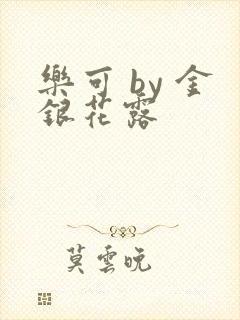 樂可 by 金
銀花露
莫雲晚